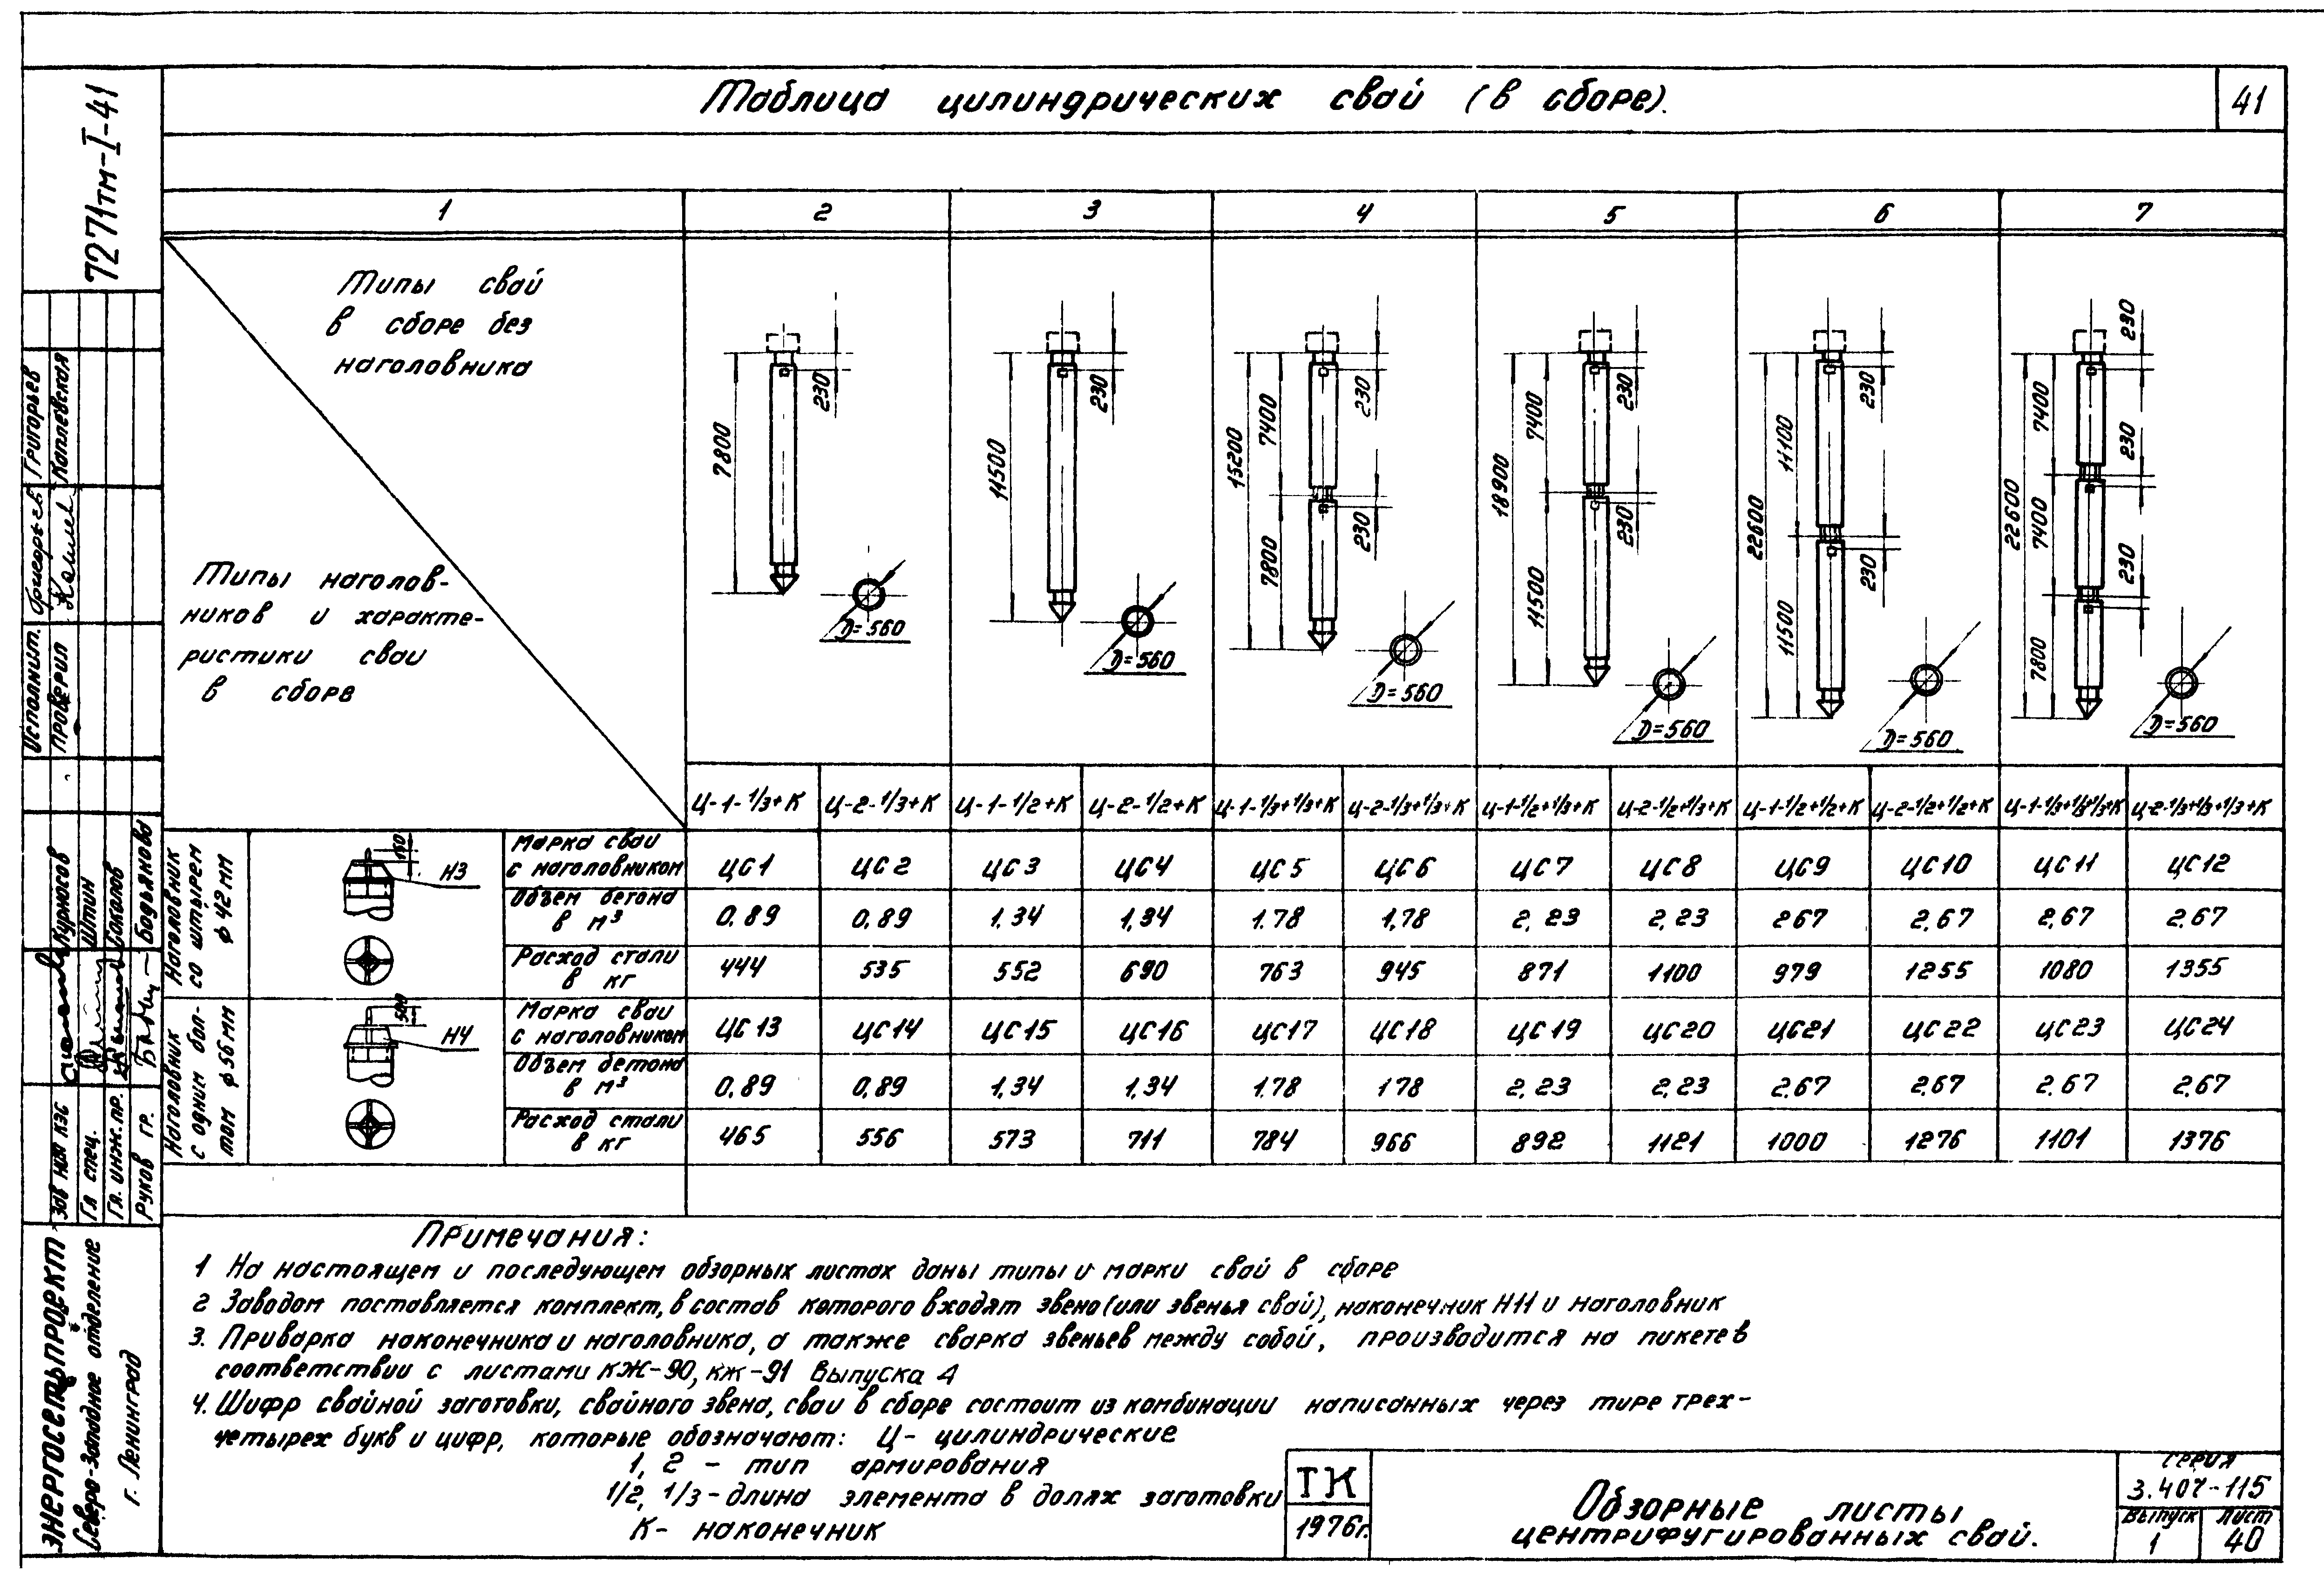 Таблица цилиндрических свай (в сборе).
41
7271тм-I-41
1 2 3 4 5 6 7
Типы свай
в сборе без
наголовника
Типы наголов-
ников и характе-
ристики сваи
в сборе
7800 230 D=560
11500 230 D=560
15200 7400 7800 230 230 D=560
18900 7400 11500 230 230 D=560
22600 11100 11500 230 230 D=560
22600 7400 7400 7800 230 230 230 D=560
Ц-1-1/3+К Ц-2-1/3+К Ц-1-1/2+К Ц-2-1/2+К Ц-1-1/3+1/3+К Ц-2-1/3+1/3+К Ц-1-1/2+1/3+К Ц-2-1/2+1/3+К Ц-1-1/2+1/2+К Ц-2-1/2+1/2+К Ц-1-1/3+1/3+1/3+К Ц-2-1/3+1/3+1/3+К
Наголовник
со штырем
ф 42 мм
150
Н3
Марка сваи
с наголовником
ЦС1 ЦС2 ЦС3 ЦС4 ЦС5 ЦС6 ЦС7 ЦС8 ЦС9 ЦС10 ЦС11 ЦС12
Объем бетона
в м³
0.89 0.89 1.34 1.34 1.78 1.78 2.23 2.23 267 2.67 2.67 2.67
Расход стали
в кг
444 535 552 690 763 945 871 1100 979 1255 1080 1355
Наголовник
с одним бол-
том ф56мм
500
Н4
Марка сваи
с наголовником
ЦС13 ЦС14 ЦС15 ЦС16 ЦС17 ЦС18 ЦС19 ЦС20 ЦС21 ЦС22 ЦС23 ЦС24
Объем бетона
в м³
0.89 0.89 1.34 1.34 1.78 178 2.23 2.23 2.67 2.67 2.67 2.67
Расход стали
в кг
465 556 573 711 784 966 892 1121 1000 1276 1101 1376
Примечания:
1 На настоящем и последующем обзорных листах даны типы и марки свай в сборе
2 Заводом поставляется комплект, в состав которого входят звено (или звенья свай), наконечник Н11 и наголовник
3. Приварка наконечника и наголовника, а также сварка звеньев между собой, производится на пикете в
соответствии с листами КЖ-90, КЖ-91 Выпуска 4
4. Шифр свайной заготовки, свайного звена, сваи в сборе состоит из комбинации написанных через тире трех-
четырех букв и цифр, которые обозначают: Ц- цилиндрические
1, 2 - тип армирования
1/2, 1/3-длина элемента в долях заготовки
К- наконечник
ТК
1976г.
Обзорные листы
центрифугированных свай.
Серия
3.407-115
Выпуск
1
Лист
40
Исполнил. Григорьев
Проверил Каплевская
Зав нач КЭС Курносов
Гл спец. Штин
Гл. инж. пр. Соколов
Руков гр. Бодьянова
Энергосетьпроект
Северо-Западное отделение
г. Ленинград